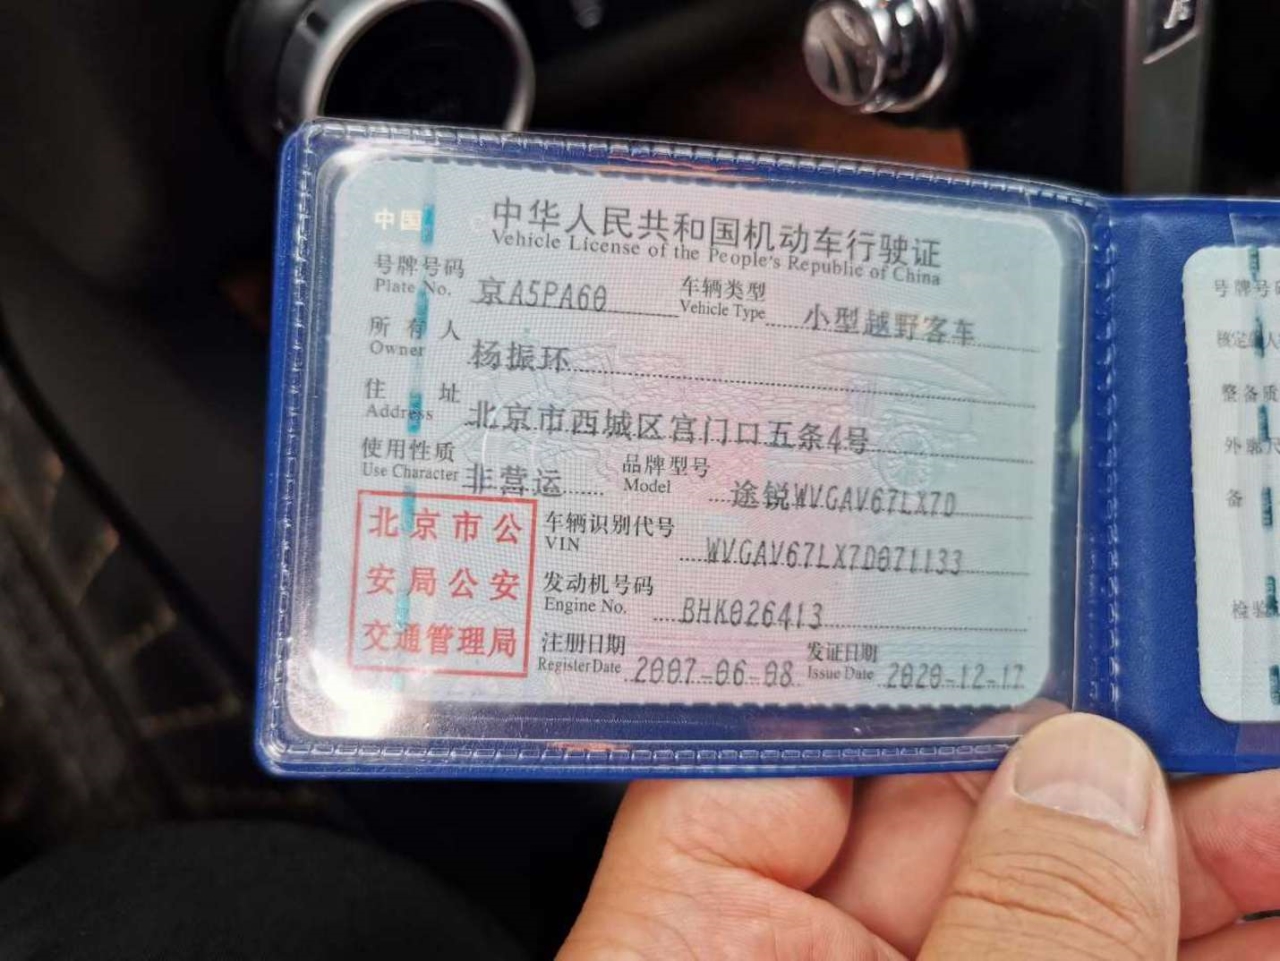 中国
中华人民共和国机动车行驶证
Vehicle License of the People's Republic of China
号牌号码 京A5PA60 车辆类型 小型越野客车
Plate No. Vehicle Type
所有人 杨振环
Owner
住址 北京市西城区宫门口五条4号
Address
使用性质 非营运 品牌型号 途锐WVGAV67LX7D
Use Character Model
北京市公
安局公安
交通管理局
车辆识别代号 WVGAV67LX7D071133
VIN
发动机号码 BHK026413
Engine No.
注册日期 2007-06-08 发证日期 2020-12-17
Register Date Issue Date
号牌号码
核定
整备质
外廓
备
检验